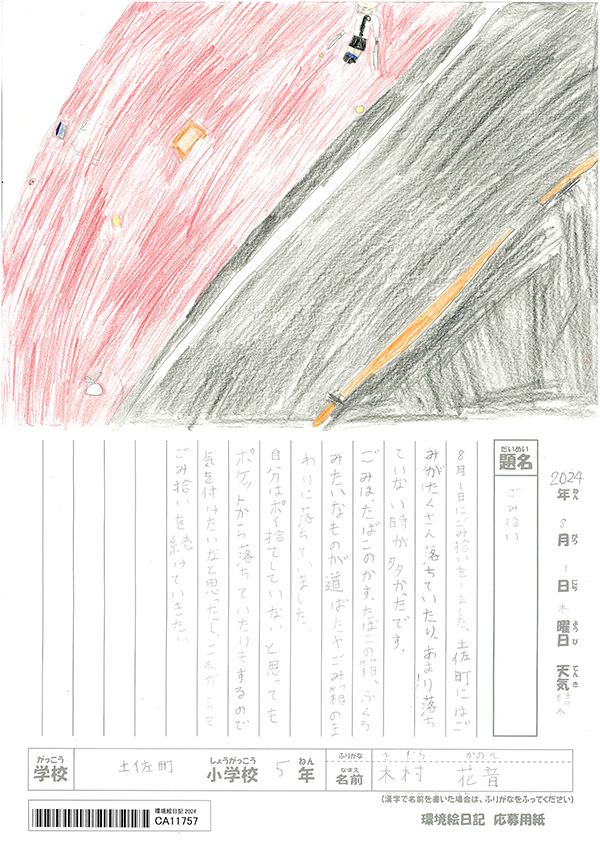 2024年 8月 1日 木曜日 天気
ねん がつ にち ようび てんき
だいめい
題名
ごみ拾い
8月1日にごみ拾いをしました。土佐町にはご
みがたくさん落ちていたり、あまり落ち
ていない時が多かったです。
ごみはたばこのかす、たばこの箱、ふくろ
みたいなものが道ばたやごみ箱のま
わりに落ちていました。
自分はポイ捨てしていないと思っても
ポケットから落ちていたりもするので
気を付けたいなと思ったし、これからも
ごみ拾いを続けていきたい
がっこう しょうがっこう ねん
学校 土佐町 小学校 5年
ふりがな きむら かのん
なまえ
名前 木村 花音
(漢字で名前を書いた場合は、ふりがなをふってください)
環境絵日記 2024
CA11757
環境絵日記 応募用紙